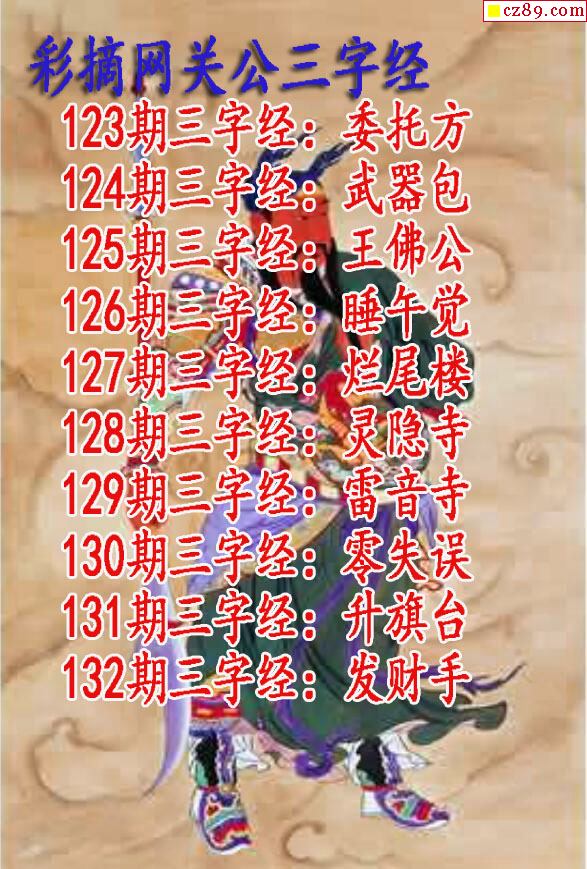 cz89.com
彩摘网关公三字经
123期三字经：委托方
124期三字经：武器包
125期三字经：王佛公
126期三字经：睡午觉
127期三字经：烂尾楼
128期三字经：灵隐寺
129期三字经：雷音寺
130期三字经：零失误
131期三字经：升旗台
132期三字经：发财手